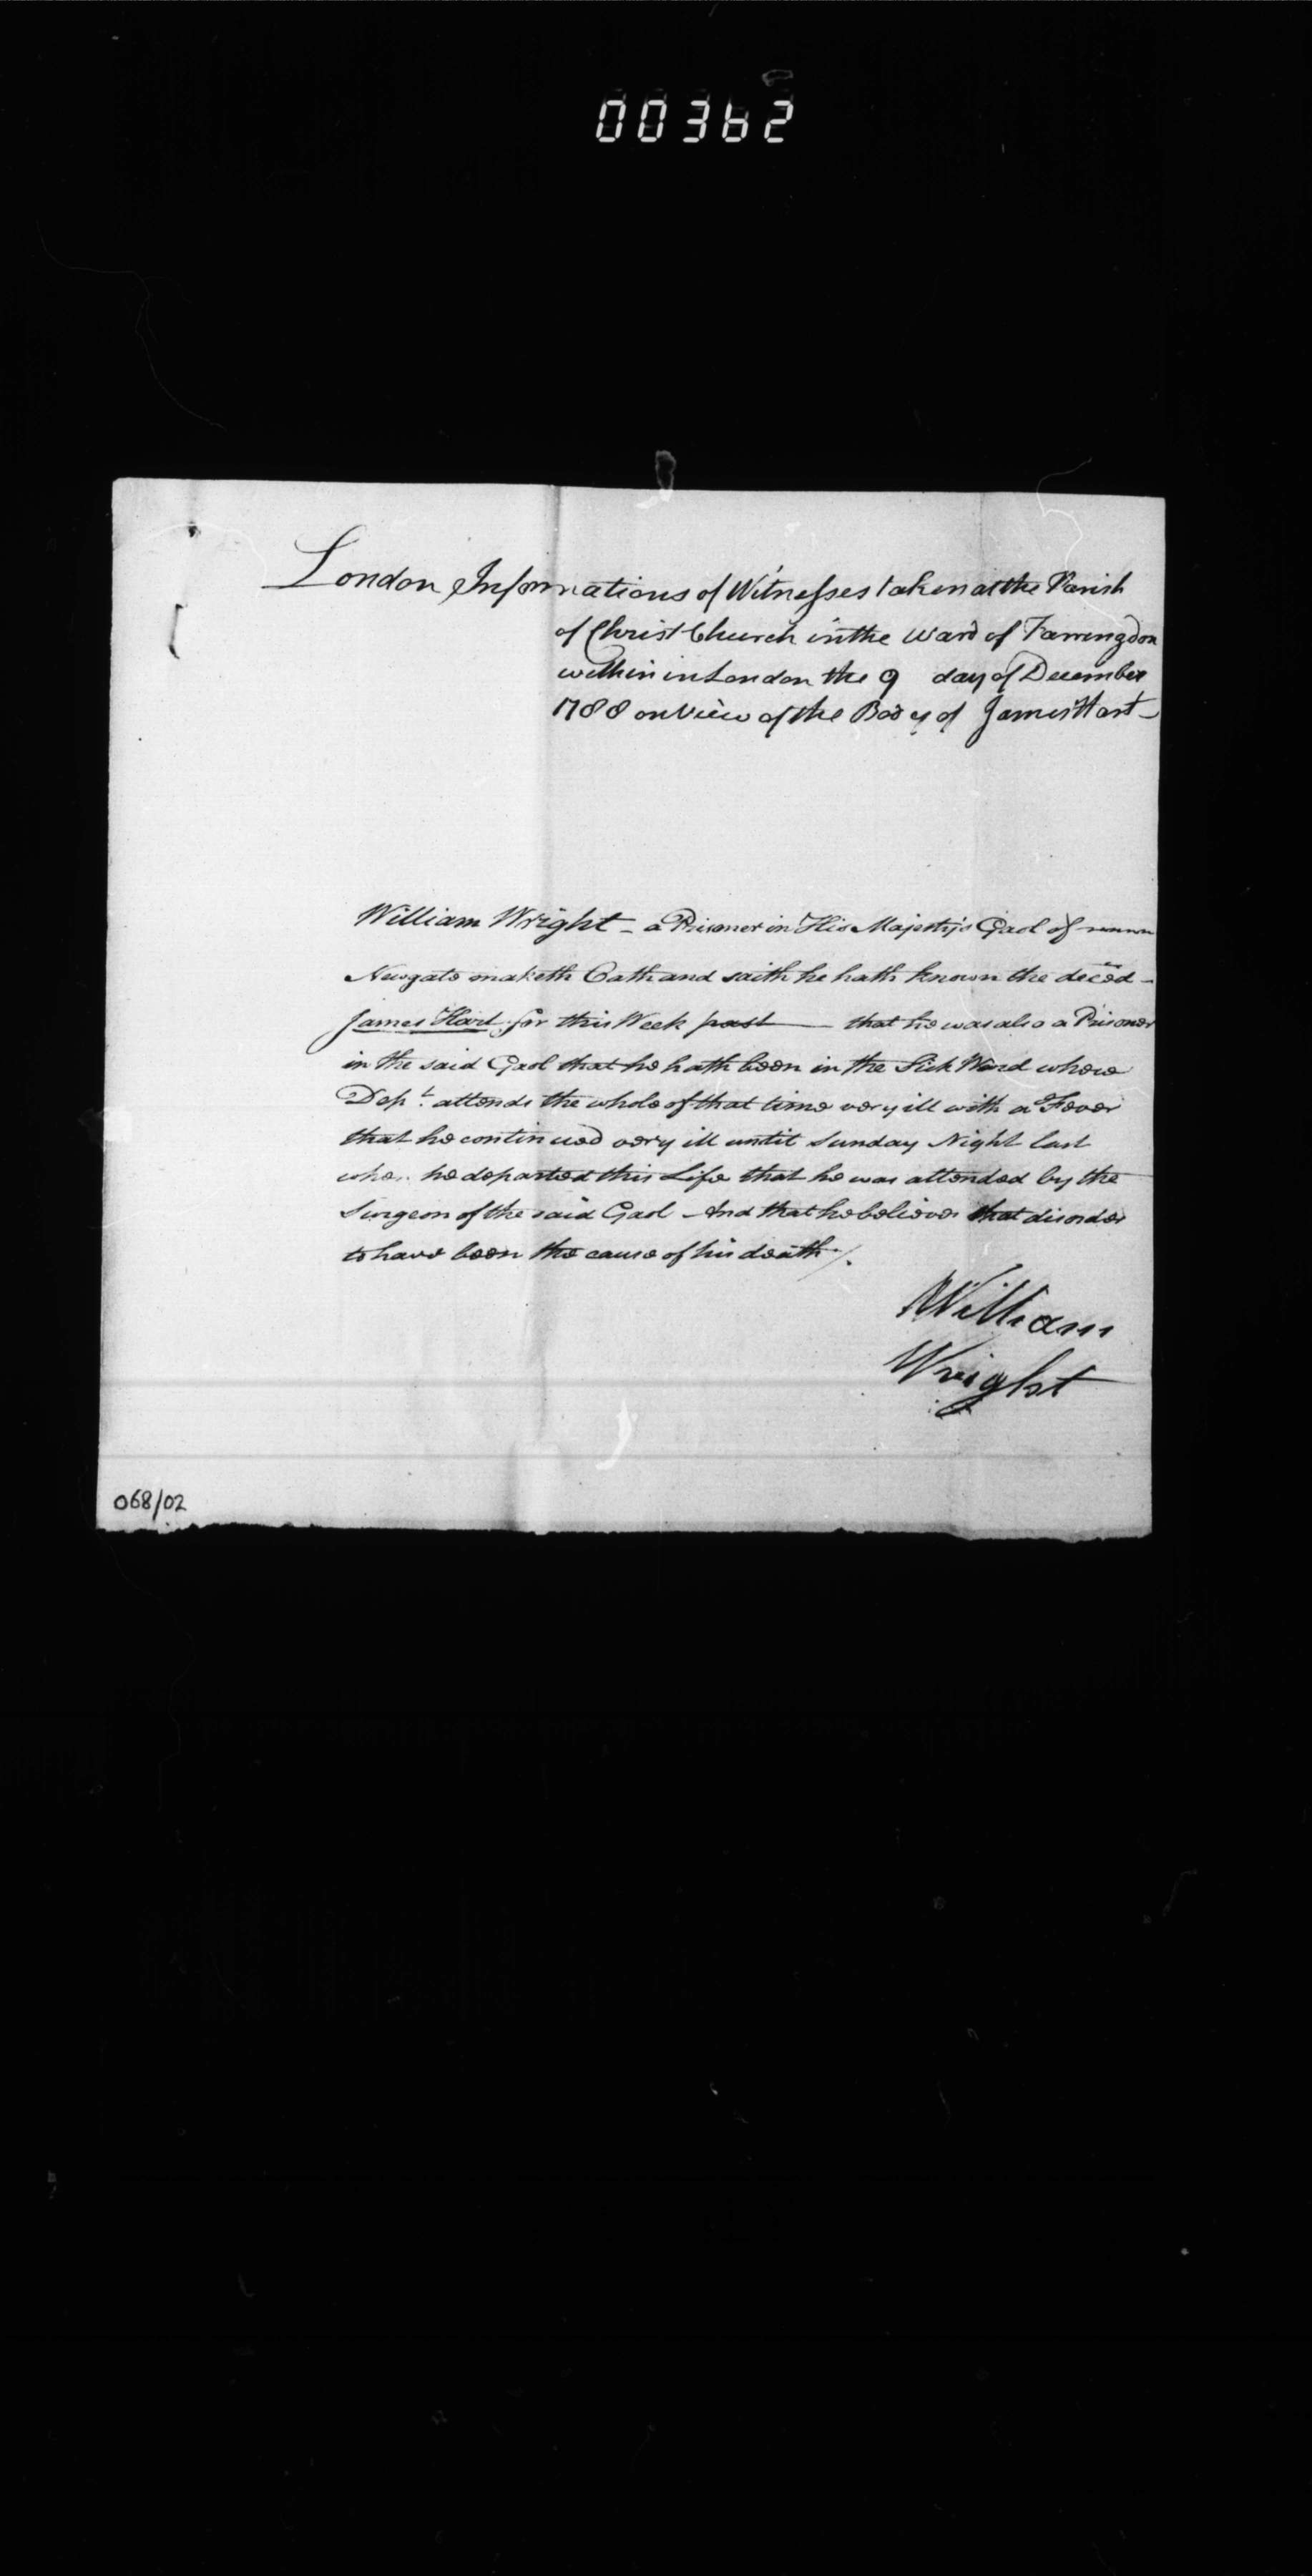 00362
London Informations of Witnesses taken at the Parish
of Christ Church in the Ward of Farringdon
within in London the 9 day of December
1788 on View of the Body of James Hart -
William Wright - a Prisoner in His Majesty's Gaol of
Newgate maketh Oath and saith he hath known the deced -
James Hart for this Week past - that he was also a Prisoner
in the said Gaol that he hath been in the Sick Ward where
Dept. attends the whole of that time very ill with a Fever
that he continued very ill until Sunday Night last
when he departed this Life that he was attended by the
Surgeon of the said Gaol - And that he believes that disorder
to have been the cause of his death /.
William
Wright
068/02